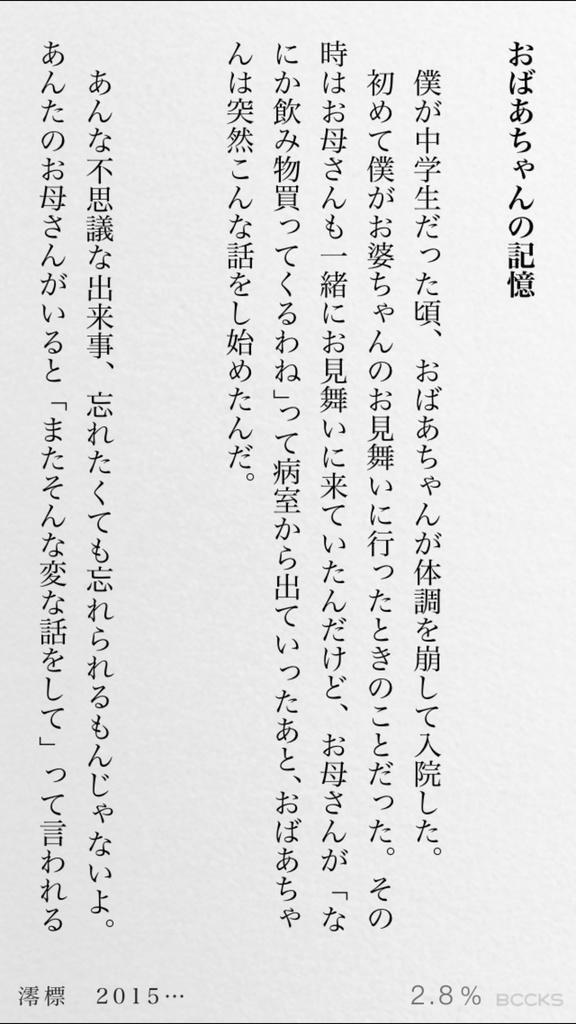 おばあちゃんの記憶
僕が中学生だった頃、おばあちゃんが体調を崩して入院した。
初めて僕がお婆ちゃんのお見舞いに行ったときのことだった。その
時はお母さんも一緒にお見舞いに来ていたんだけど、お母さんが「な
にか飲み物買ってくるわね」って病室から出ていったあと、おばあちゃ
んは突然こんな話をし始めたんだ。
あんな不思議な出来事、忘れたくても忘れられるもんじゃないよ。
あんたのお母さんがいると「またそんな変な話をして」って言われる
澪標 2015…
2.8% BCCKS